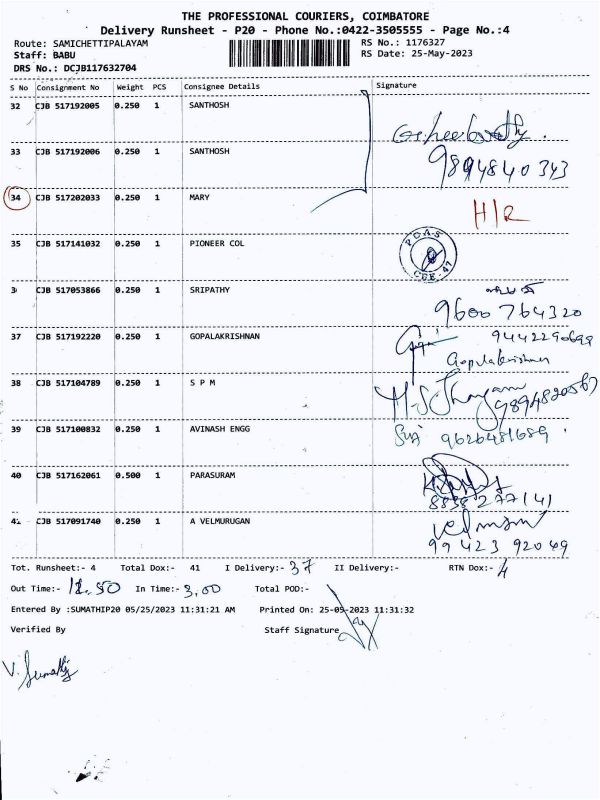 THE PROFESSIONAL COURIERS, COIMBATORE
Delivery Runsheet - P20 - Phone No.:0422-3505555 - Page No.:4
Route: SAMICHETTIPALAYAM RS No.: 1176327
Staff: BABU RS Date: 25-May-2023
DRS No.: DCJB117632704
S No Consignment No Weight PCS Consignee Details Signature
32 CJB 517192005 0.250 1 SANTHOSH
33 CJB 517192006 0.250 1 SANTHOSH
9894840343
34 CJB 517202033 0.250 1 MARY
H/R
35 CJB 517141032 0.250 1 PIONEER COL
3 CJB 517053866 0.250 1 SRIPATHY
9600 764320
37 CJB 517192220 0.250 1 GOPALAKRISHNAN 9442290699
Gopalakrishnan
38 CJB 517104789 0.250 1 S P M
9894820567
39 CJB 517100832 0.250 1 AVINASH ENGG
9626481689.
40 CJB 517162061 0.500 1 PARASURAM
8838277141
41 CJB 517091740 0.250 1 A VELMURUGAN
99423 92049
Tot. Runsheet:- 4 Total Dox:- 41 I Delivery:- 37 II Delivery:- RTN Dox:- 4
Out Time:- 12.50 In Time:- 3.00 Total POD:-
Entered By :SUMATHIP20 05/25/2023 11:31:21 AM Printed On: 25-05-2023 11:31:32
Verified By Staff Signature
V. Sumathi